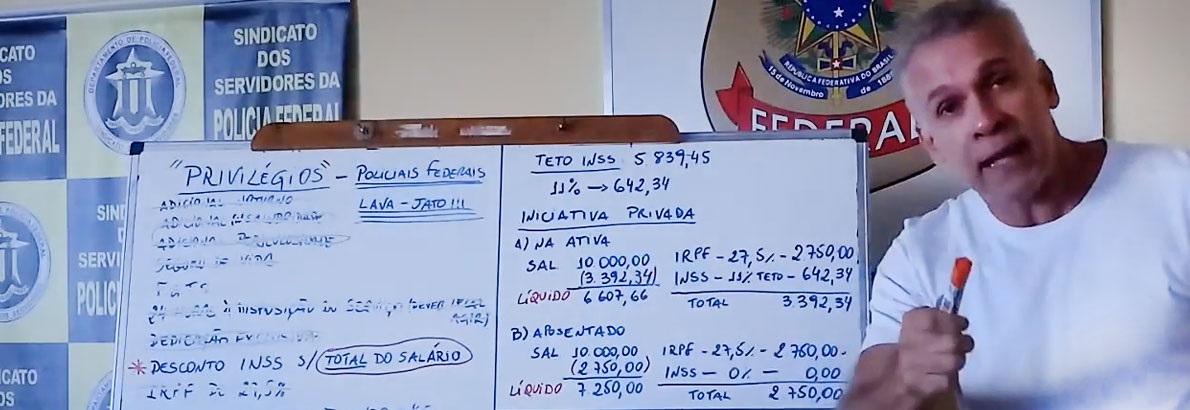 CATO
DORES DA
FEDERAL
DEPARTAMENTO DE POLICIA FEDERAL
SINDICATO
DOS
SERVIDORES DA
POLICIA FEDERAL
SIND
SERVI
POLIC
CATO
REPÚBLICA FEDERATIVA DO BRASIL
15 de Novembro de 1889
FEDERAL
"PRIVILÉGIOS" - POLICIAIS FEDERAIS
LAVA-JATO!!!
ADICIONAL NOTURNO
ADICIONAL INSALUBRIDADE
ADICIONAL PERICULOSIDADE
SEGURO DE VIDA
FGTS
DEDICAÇÃO EXCLUSIVA
* DESCONTO INSS S/ TOTAL DO SALÁRIO
IRPF DE 27,5%
TETO INSS 5 839,45
11% → 642,34
INICIATIVA PRIVADA
A) NA ATIVA
SAL 10 000,00 IRPF - 27,5% - 2 750,00
(3.392,34) INSS - 11% TETO - 642,34
LÍQUIDO 6 607,66 TOTAL 3.392,34
B) APOSENTADO
SAL 10 000,00 IRPF - 27,5% - 2 750,00-
(2 750,00) INSS - 0% - 0,00
LÍQUIDO 7 250,00 TOTAL 2 750,00